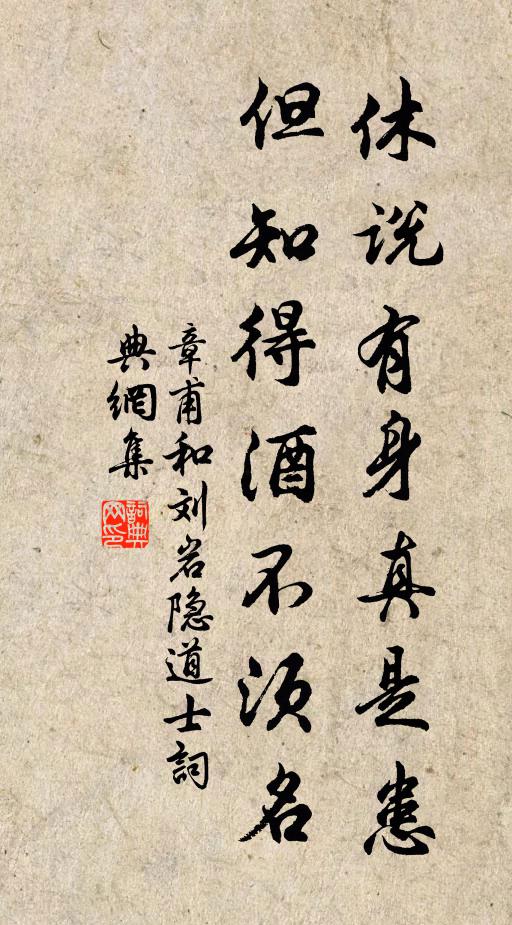 休说有身真是患
但知得酒不须名
章甫和刘岩隐道士詞
典網集
詞典
网印